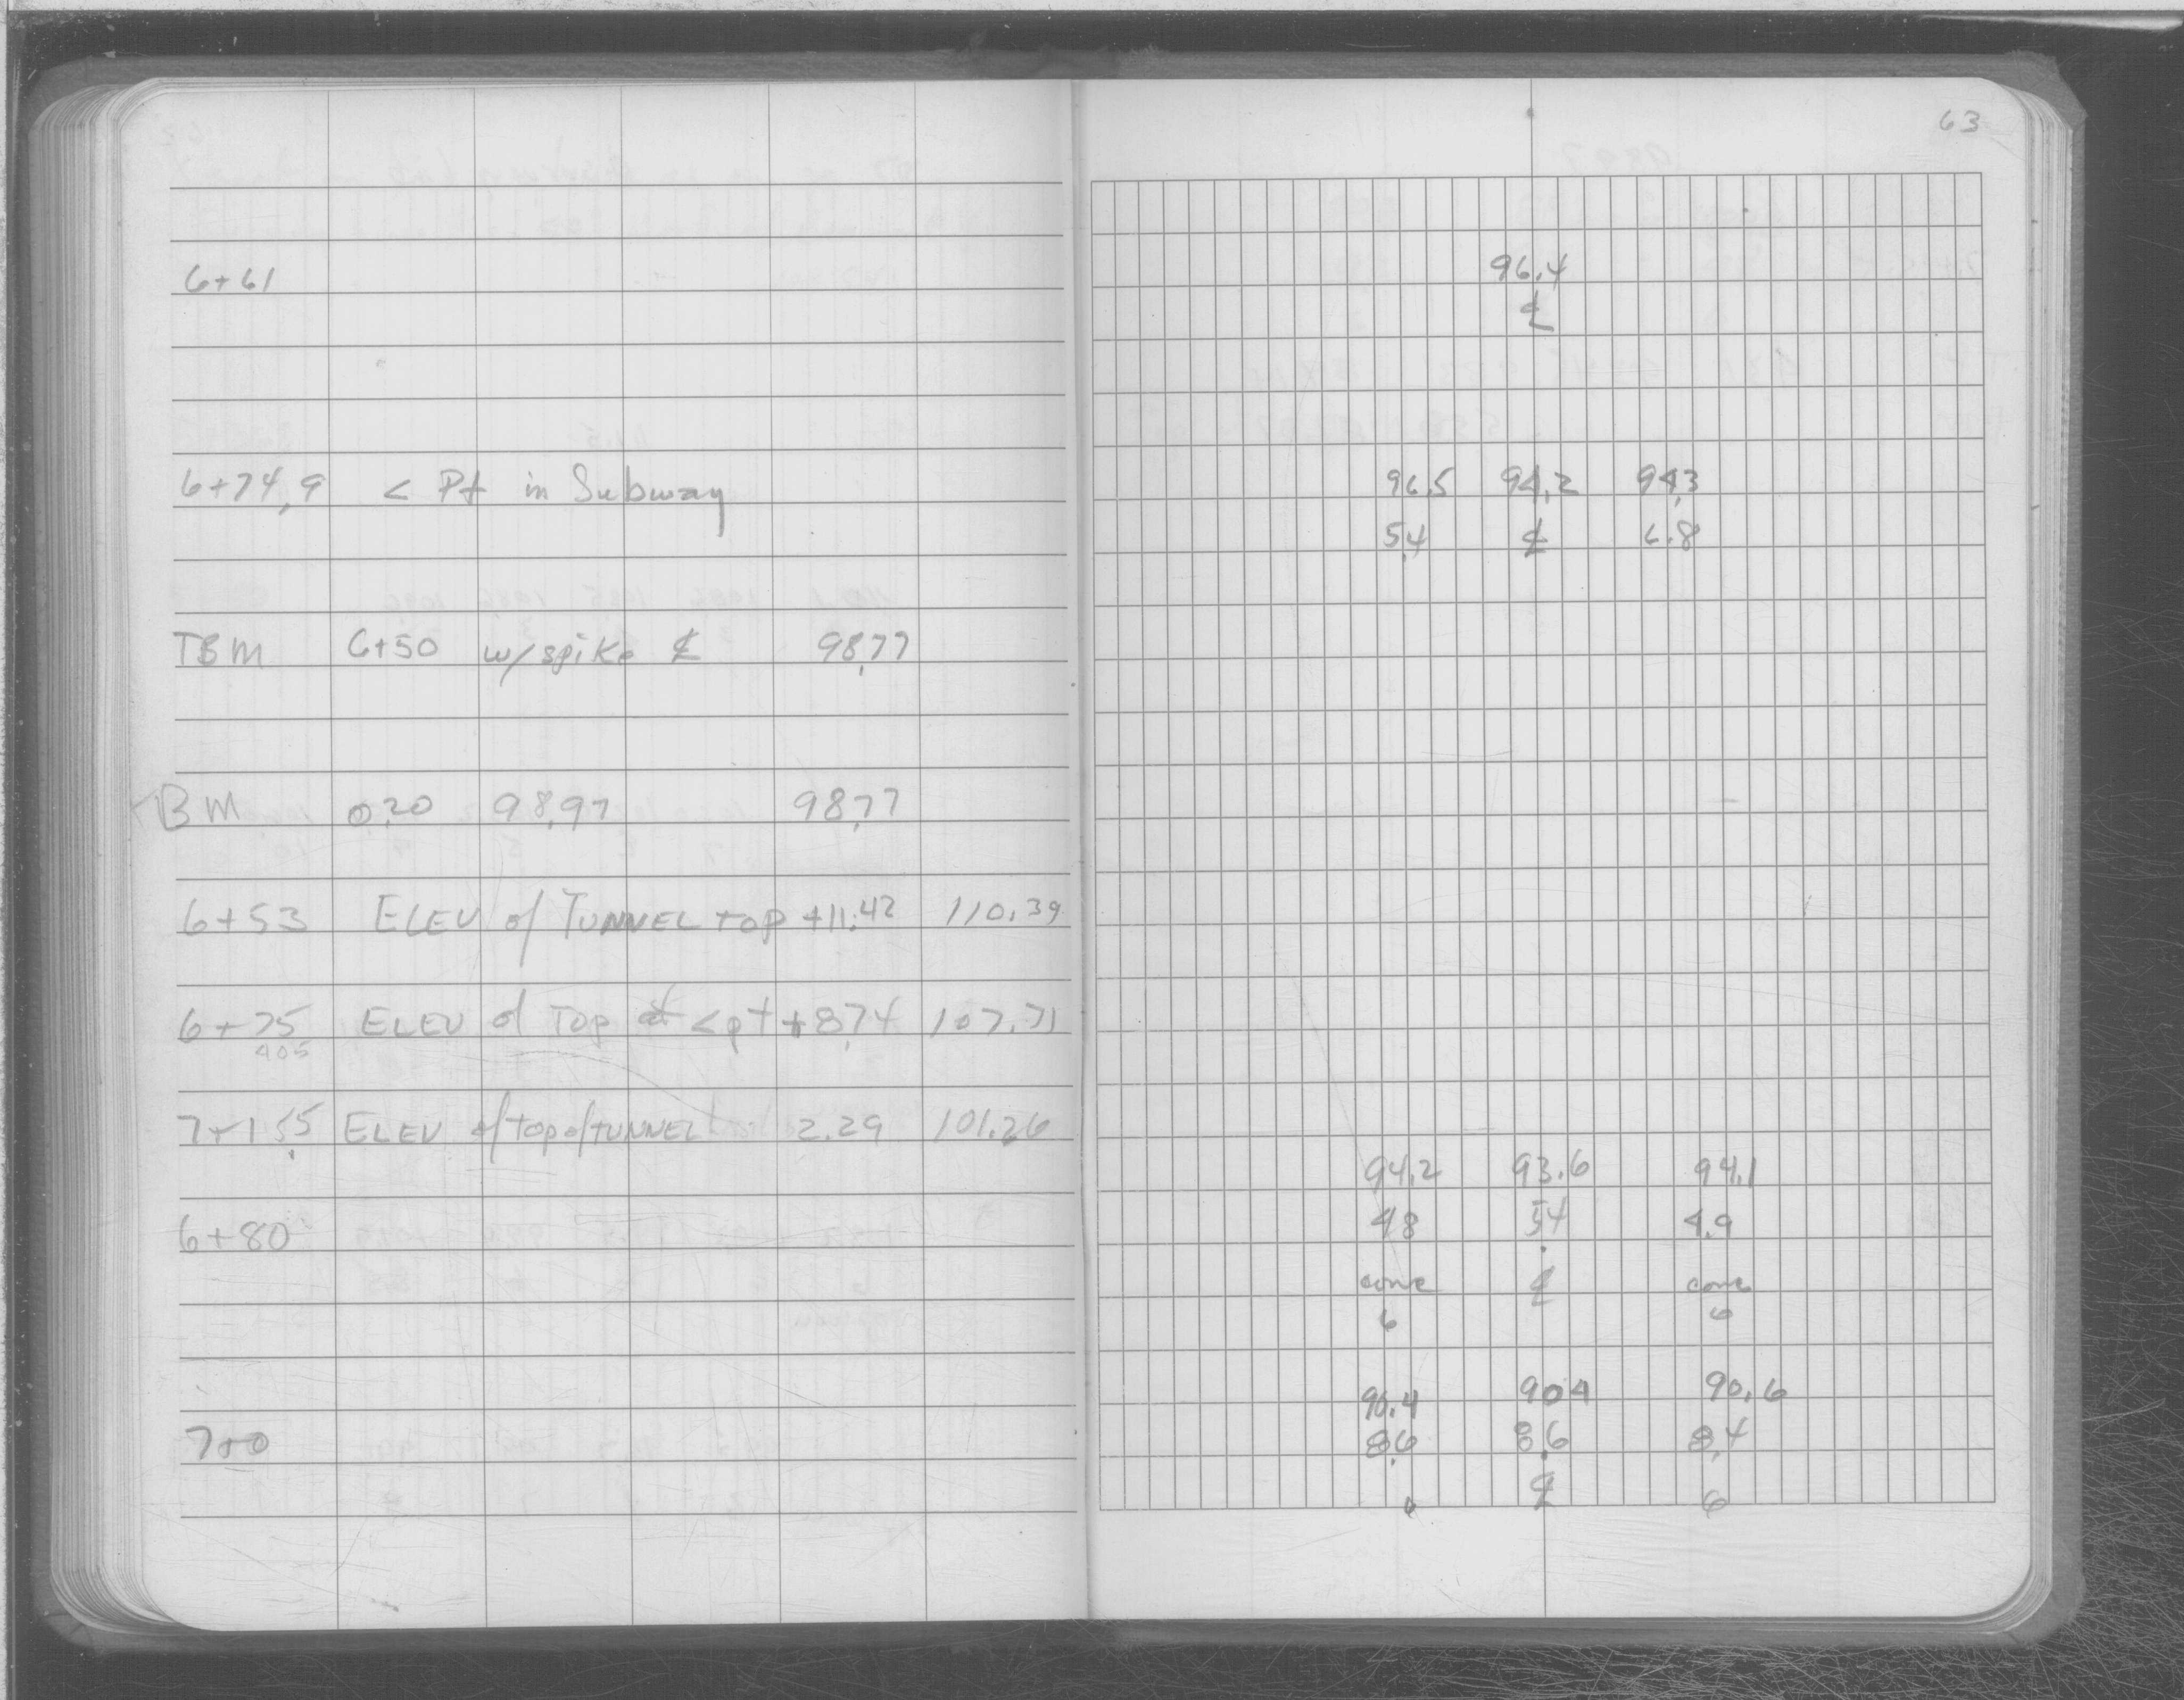 63
6+61 96.4
℄
6+74.9 < Pt in Subway 96.5 94.2 94.3
5.4 ℄ 6.8
TBM 6+50 w/ spike ℄ 98.77
BM 0.20 98.97 98.77
6+53 ELEV of TUNNEL top +11.42 110.39
6+75 ELEV of Top at < pt +8.74 107.71
405
7+15.5 ELEV of top of TUNNEL 2.29 101.26
94.2 93.6 94.1
6+80 4.8 5.4 4.9
conc ℄ conc
6 6
90.4 90.4 90.6
7+0 8.6 8.6 8.4
℄ 6